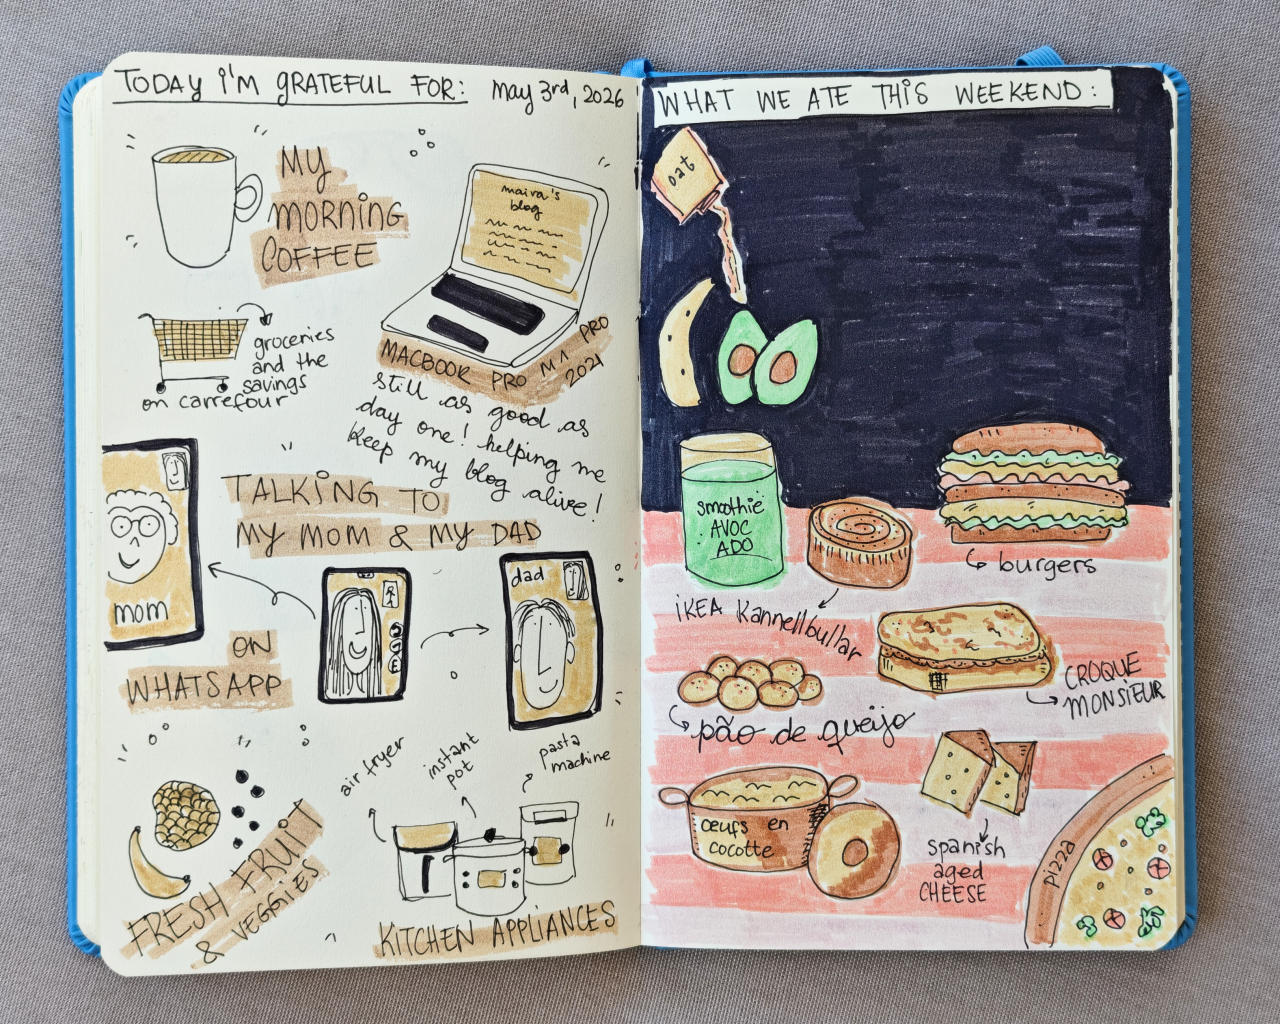 TODAY i'M GRATEFUL FOR:
may 3rd, 2026
MY
MORNING
COFFEE
maira's
blog
MACBOOK PRO M1 PRO
2021
still as good as
day one! helping me
keep my blog alive!
groceries
and the
savings
on carrefour
TALKING TO
MY MOM & MY DAD
mom
dad
ON
WHATSAPP
FRESH FRUIT
& VEGGIES
air fryer
instant
pot
pasta
machine
KITCHEN APPLIANCES
WHAT WE ATE THIS WEEKEND:
oat
smoothie
AVOC
ADO
burgers
iKEA Kannellbullar
CROQUE
MONSIEUR
pão de queijo
œufs en
cocotte
spanish
aged
CHEESE
pizza